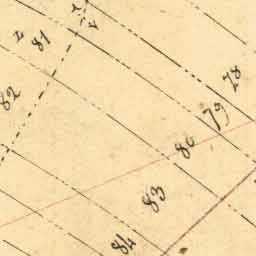 81
82
78
79
80
83
84